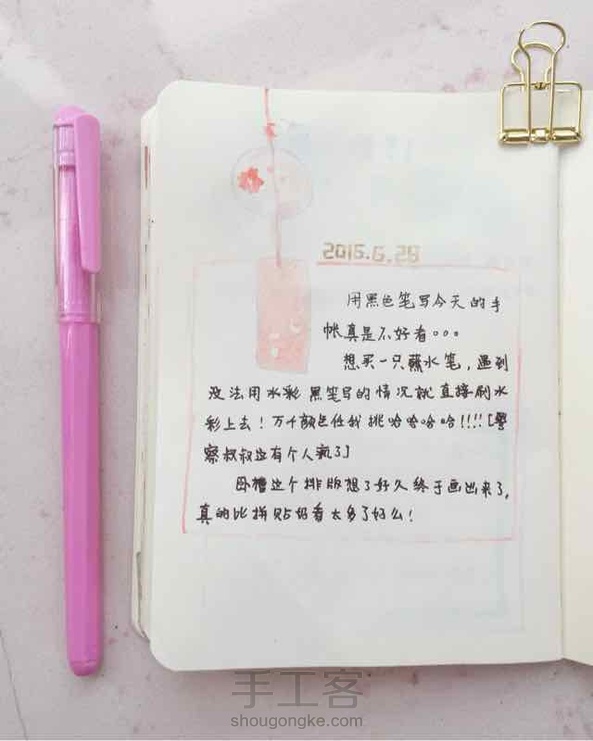 2016.6.28
用黑色笔写今天的手
帐真是不好看。。。
想买一只蘸水笔，遇到
没法用水彩黑笔写的情况就直接刷水
彩上去！万千颜色任我挑哈哈哈哈!!!![警
察叔叔这有个人疯了]
卧槽这个排版想了好久终于画出来了，
真的比拼贴好看太多了好么！
手工客
shougongke.com